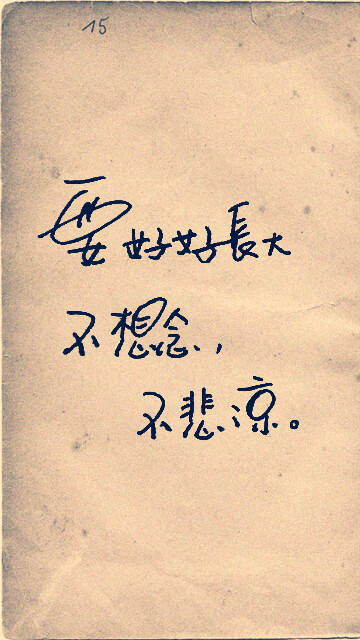 15
要好好長大
不想念,
不悲涼。